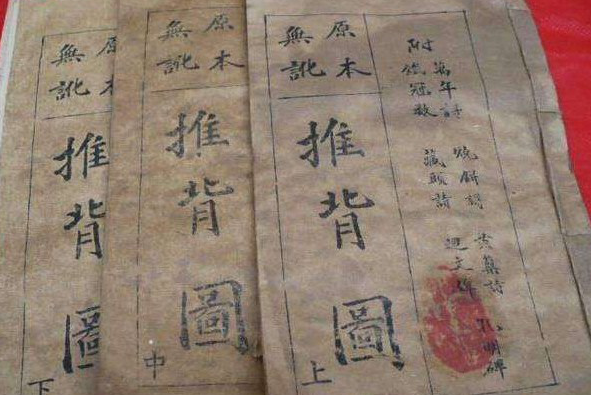 原本
無訛
推背圖
下
原本
無訛
推背圖
中
附
萬年詩
鐵冠數
燒餅謌
藏頭詩
黃蘗詩
迴文
孔明碑
原本
無訛
推背圖
上